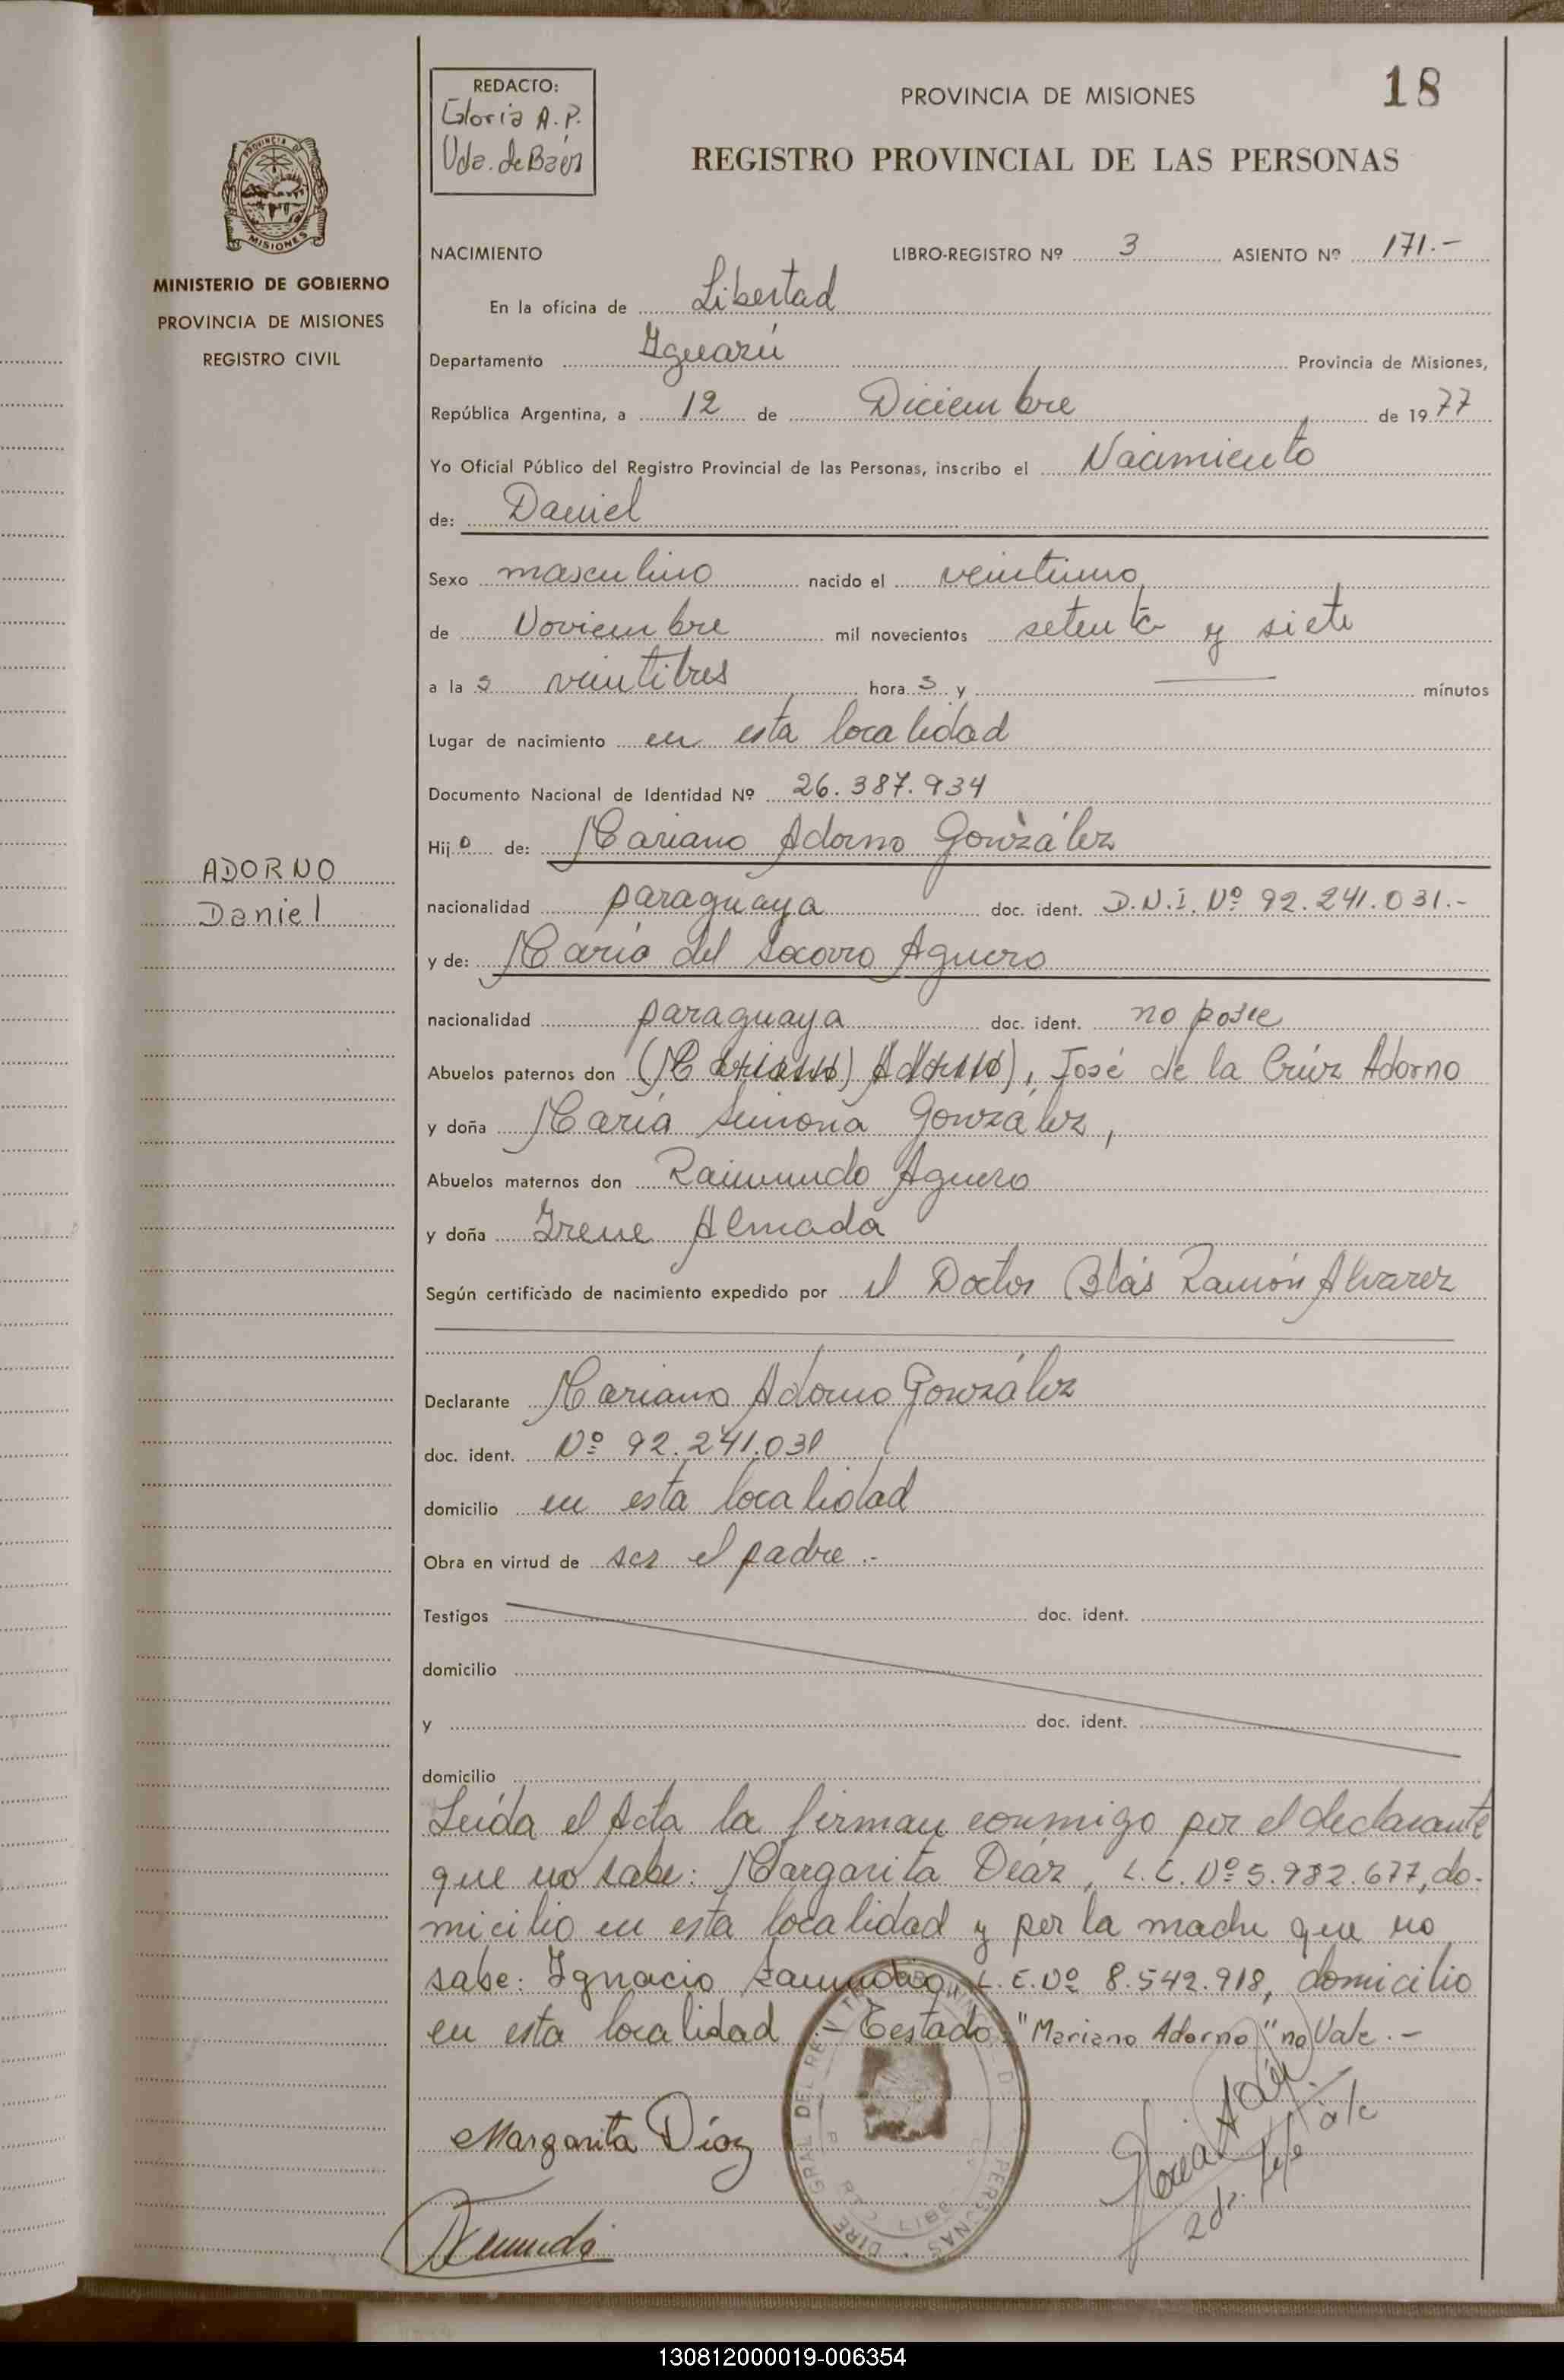 18
REDACTO:
Gloria A. P.
Vda. de Báez
PROVINCIA DE MISIONES
REGISTRO PROVINCIAL DE LAS PERSONAS
PROVINCIA DE
MISIONES
MINISTERIO DE GOBIERNO
PROVINCIA DE MISIONES
REGISTRO CIVIL
ADORNO
Daniel
NACIMIENTO LIBRO-REGISTRO Nº 3 ASIENTO Nº 171.-
En la oficina de Libertad
Departamento Iguazú Provincia de Misiones,
República Argentina, a 12 de Diciembre de 1977
Yo Oficial Público del Registro Provincial de las Personas, inscribo el Nacimiento
de: Daniel
Sexo masculino nacido el veintiuno
de Noviembre mil novecientos setenta y siete
a la s veintitres hora s y —— minutos
Lugar de nacimiento en esta localidad
Documento Nacional de Identidad Nº 26.387.934
Hij o de: Mariano Adorno González
nacionalidad paraguaya doc. ident. D.N.I. Nº 92.241.031.-
y de: María del Socorro Aguero
nacionalidad paraguaya doc. ident. no posee
Abuelos paternos don (Mariano) Adorno), José de la Crúz Adorno
y doña María Simona González,
Abuelos maternos don Raimundo Aguero
y doña Irene Almada
Según certificado de nacimiento expedido por el Doctor Blás Ramón Alvarez
Declarante Mariano Adorno González
doc. ident. Nº 92.241.031
domicilio en esta localidad
Obra en virtud de ser el padre.-
Testigos doc. ident.
domicilio
y doc. ident.
domicilio
Leída el Acta la firman conmigo por el declarante
que no sabe: Margarita Díaz, L.C. Nº 5.982.677, do-
micilio en esta localidad y por la madre que no
sabe: Ignacio Zamudio, L.E. Nº 8.542.918, domicilio
en esta localidad.- Testado: "Mariano Adorno" no Vale.-
Margarita Díaz
130812000019-006354